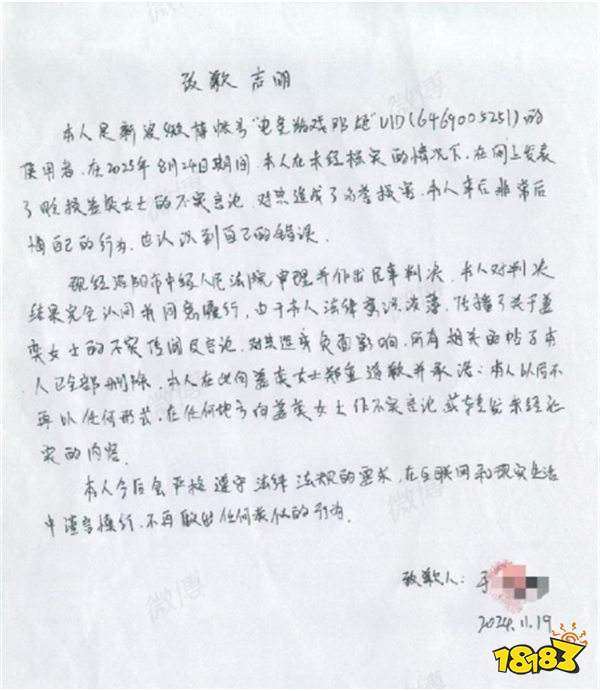 致歉声明
本人是新浪微博账号"电竞游戏 "UID(6469005251)的
使用者，在2023年8月24日期间，本人在未经核实的情况下，在网上发表
了 姜奕女士的不实言论，对其造成了名誉损害，本人事后非常后
悔自己的行为，也认识到自己的错误。
现经洛阳市中级人民法院审理并作出民事判决，本人对判决
结果完全认同并同意履行，由于本人法律意识淡薄，传播了关于姜
奕女士的不实传闻及言论，对其造成负面影响，所有相关的帖子本
人已全部删除，本人在此向姜奕女士郑重道歉并承诺：本人以后不
再以任何形式、在任何地方向姜奕女士作不实言论，或转发未经证
实的内容。
本人今后会严格遵守法律法规的要求，在互联网和现实生活
中谨言慎行，不再取出任何类似的行为。
致歉人：
2024.11.19
微博
18183